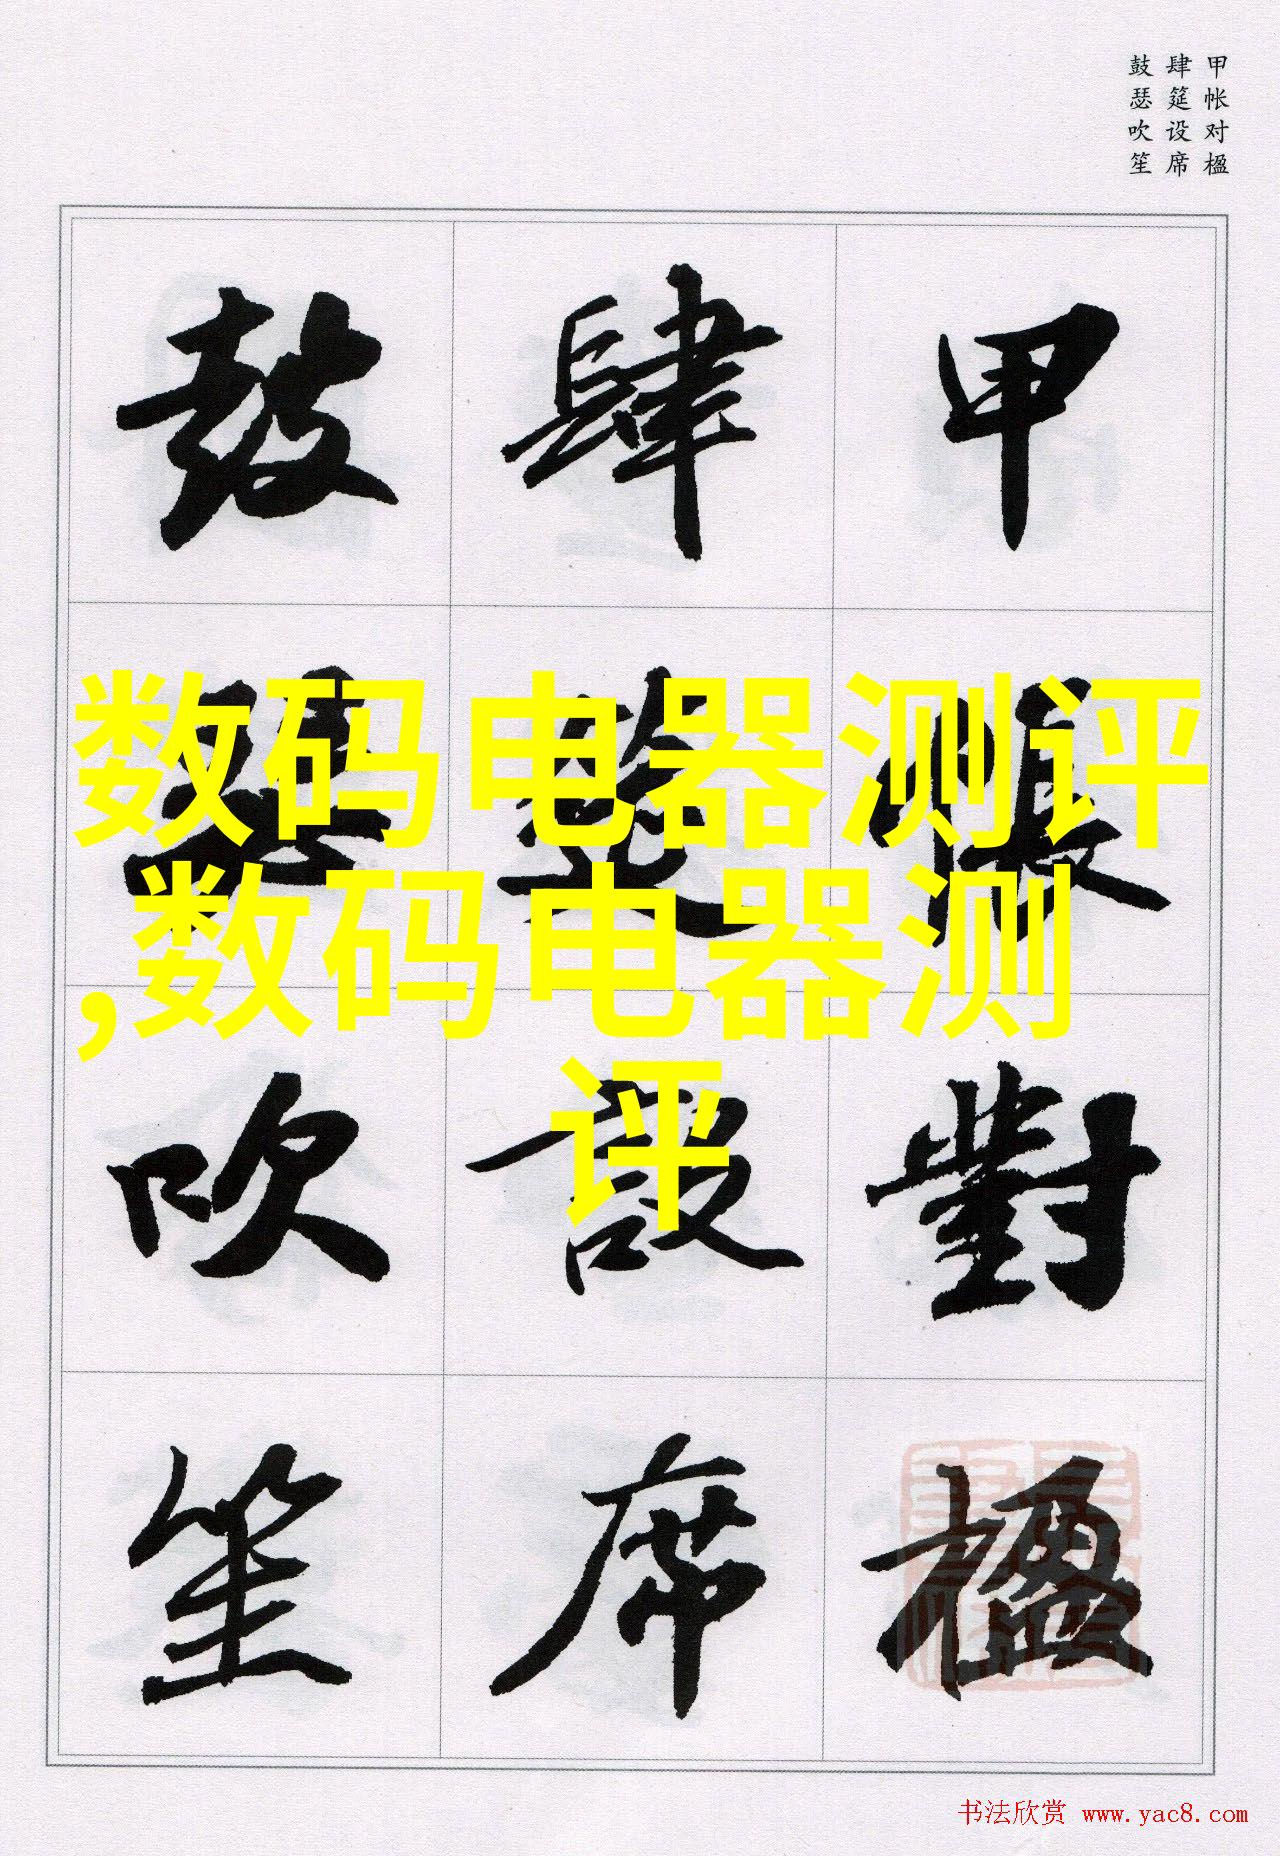 甲帐对楹
肆筵设席
鼓瑟吹笙
甲帳對楹
肆筵設席
鼓瑟吹笙
数码电器测评
,数码电器测
评
书法欣赏 www.yac8.com